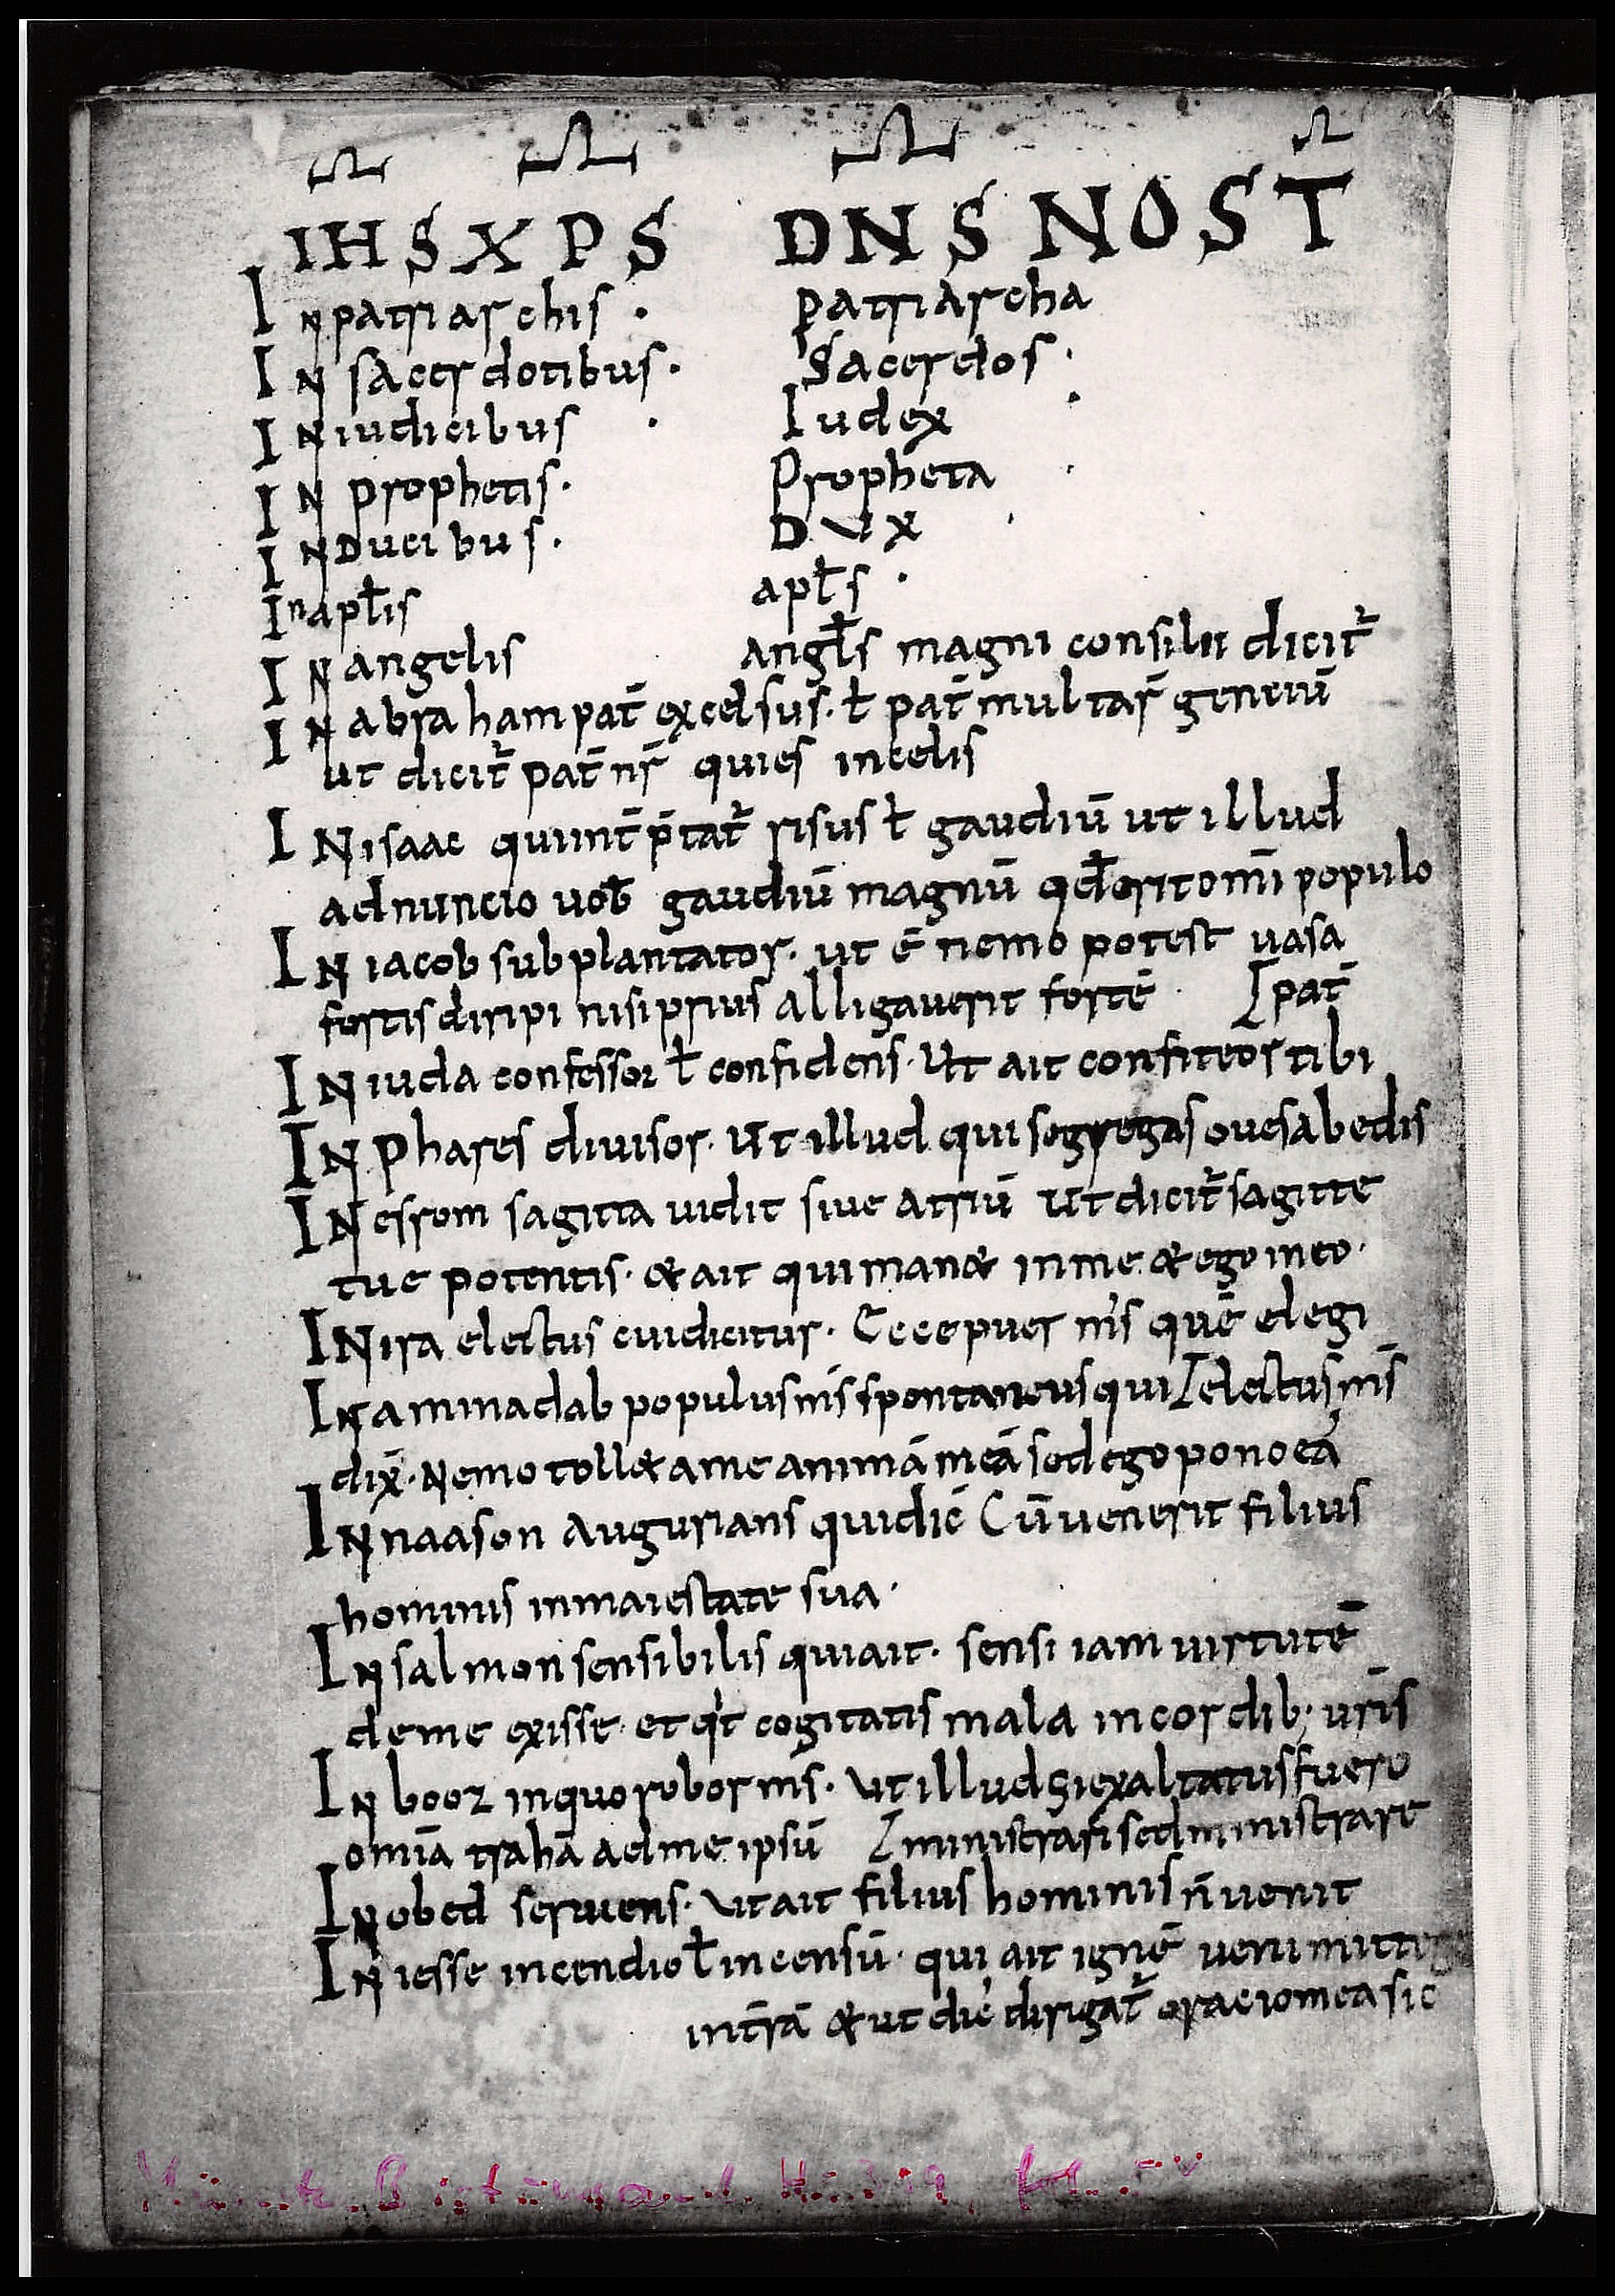 IHS XPS DNS NOST̄
IN patriarchis · patriarcha
IN sacerdotibus · Sacerdos ·
IN iudicibus · Iudex ·
IN prophetis · Propheta ·
IN Ducibus · DVX ·
In apłis apłs ·
IN angelis angłs magni consilii dicit᷑
IN abraham pat̄ excelsus · ł pat̄ multar̄ genciū
ut dicit᷑ pat̄ nr̄ qui es in celis
IN isaac qui int̄p̄tat᷑ risus ł gaudiū ut illud
adnuncio uob̄ gaudiū magnū qđ erit omī populo
IN iacob subplantator · ut ē nemo potest uasa
fortis diripi nisi prius alligauerit fortē · [pat̄
IN iuda confessor ł confidens · Ut ait confiteor tibi
IN Phares diuisor · Ut illud qui segregas oues ab edis
IN esrom sagitta uidit siue atriū Ut dicit᷑ sagitte
tue potentis · & ait qui man& in me & ego in eo ·
IN ira electus cui dicitur · Ecce puer m̄s quē elegi
IN aminadab populus m̄s spontaneus qui [electus m̄s
dix̄ · Nemo toll& a me animā meā sed ego pono eā
IN naason augurians qui dic̄ Cū uenerit filius
hominis in maiestate sua ·
IN salmon sensibilis qui ait · sensi iam uirtutē
de me exisse · et qͥt cogitatis mala in cordib; ur̄is
IN booz in quo robor m̄s · Ut illud Si exaltatus fuero
omīa trahā ad me ipsū [ministrari sed ministrare
IN obed seruiens · Ut ait filius hominis n̄ uenit
IN iesse incendio ł incensū · qui ait ignē ueni mittere
in t̄rā & ut dic̄ dirigat᷑ oracio mea sic